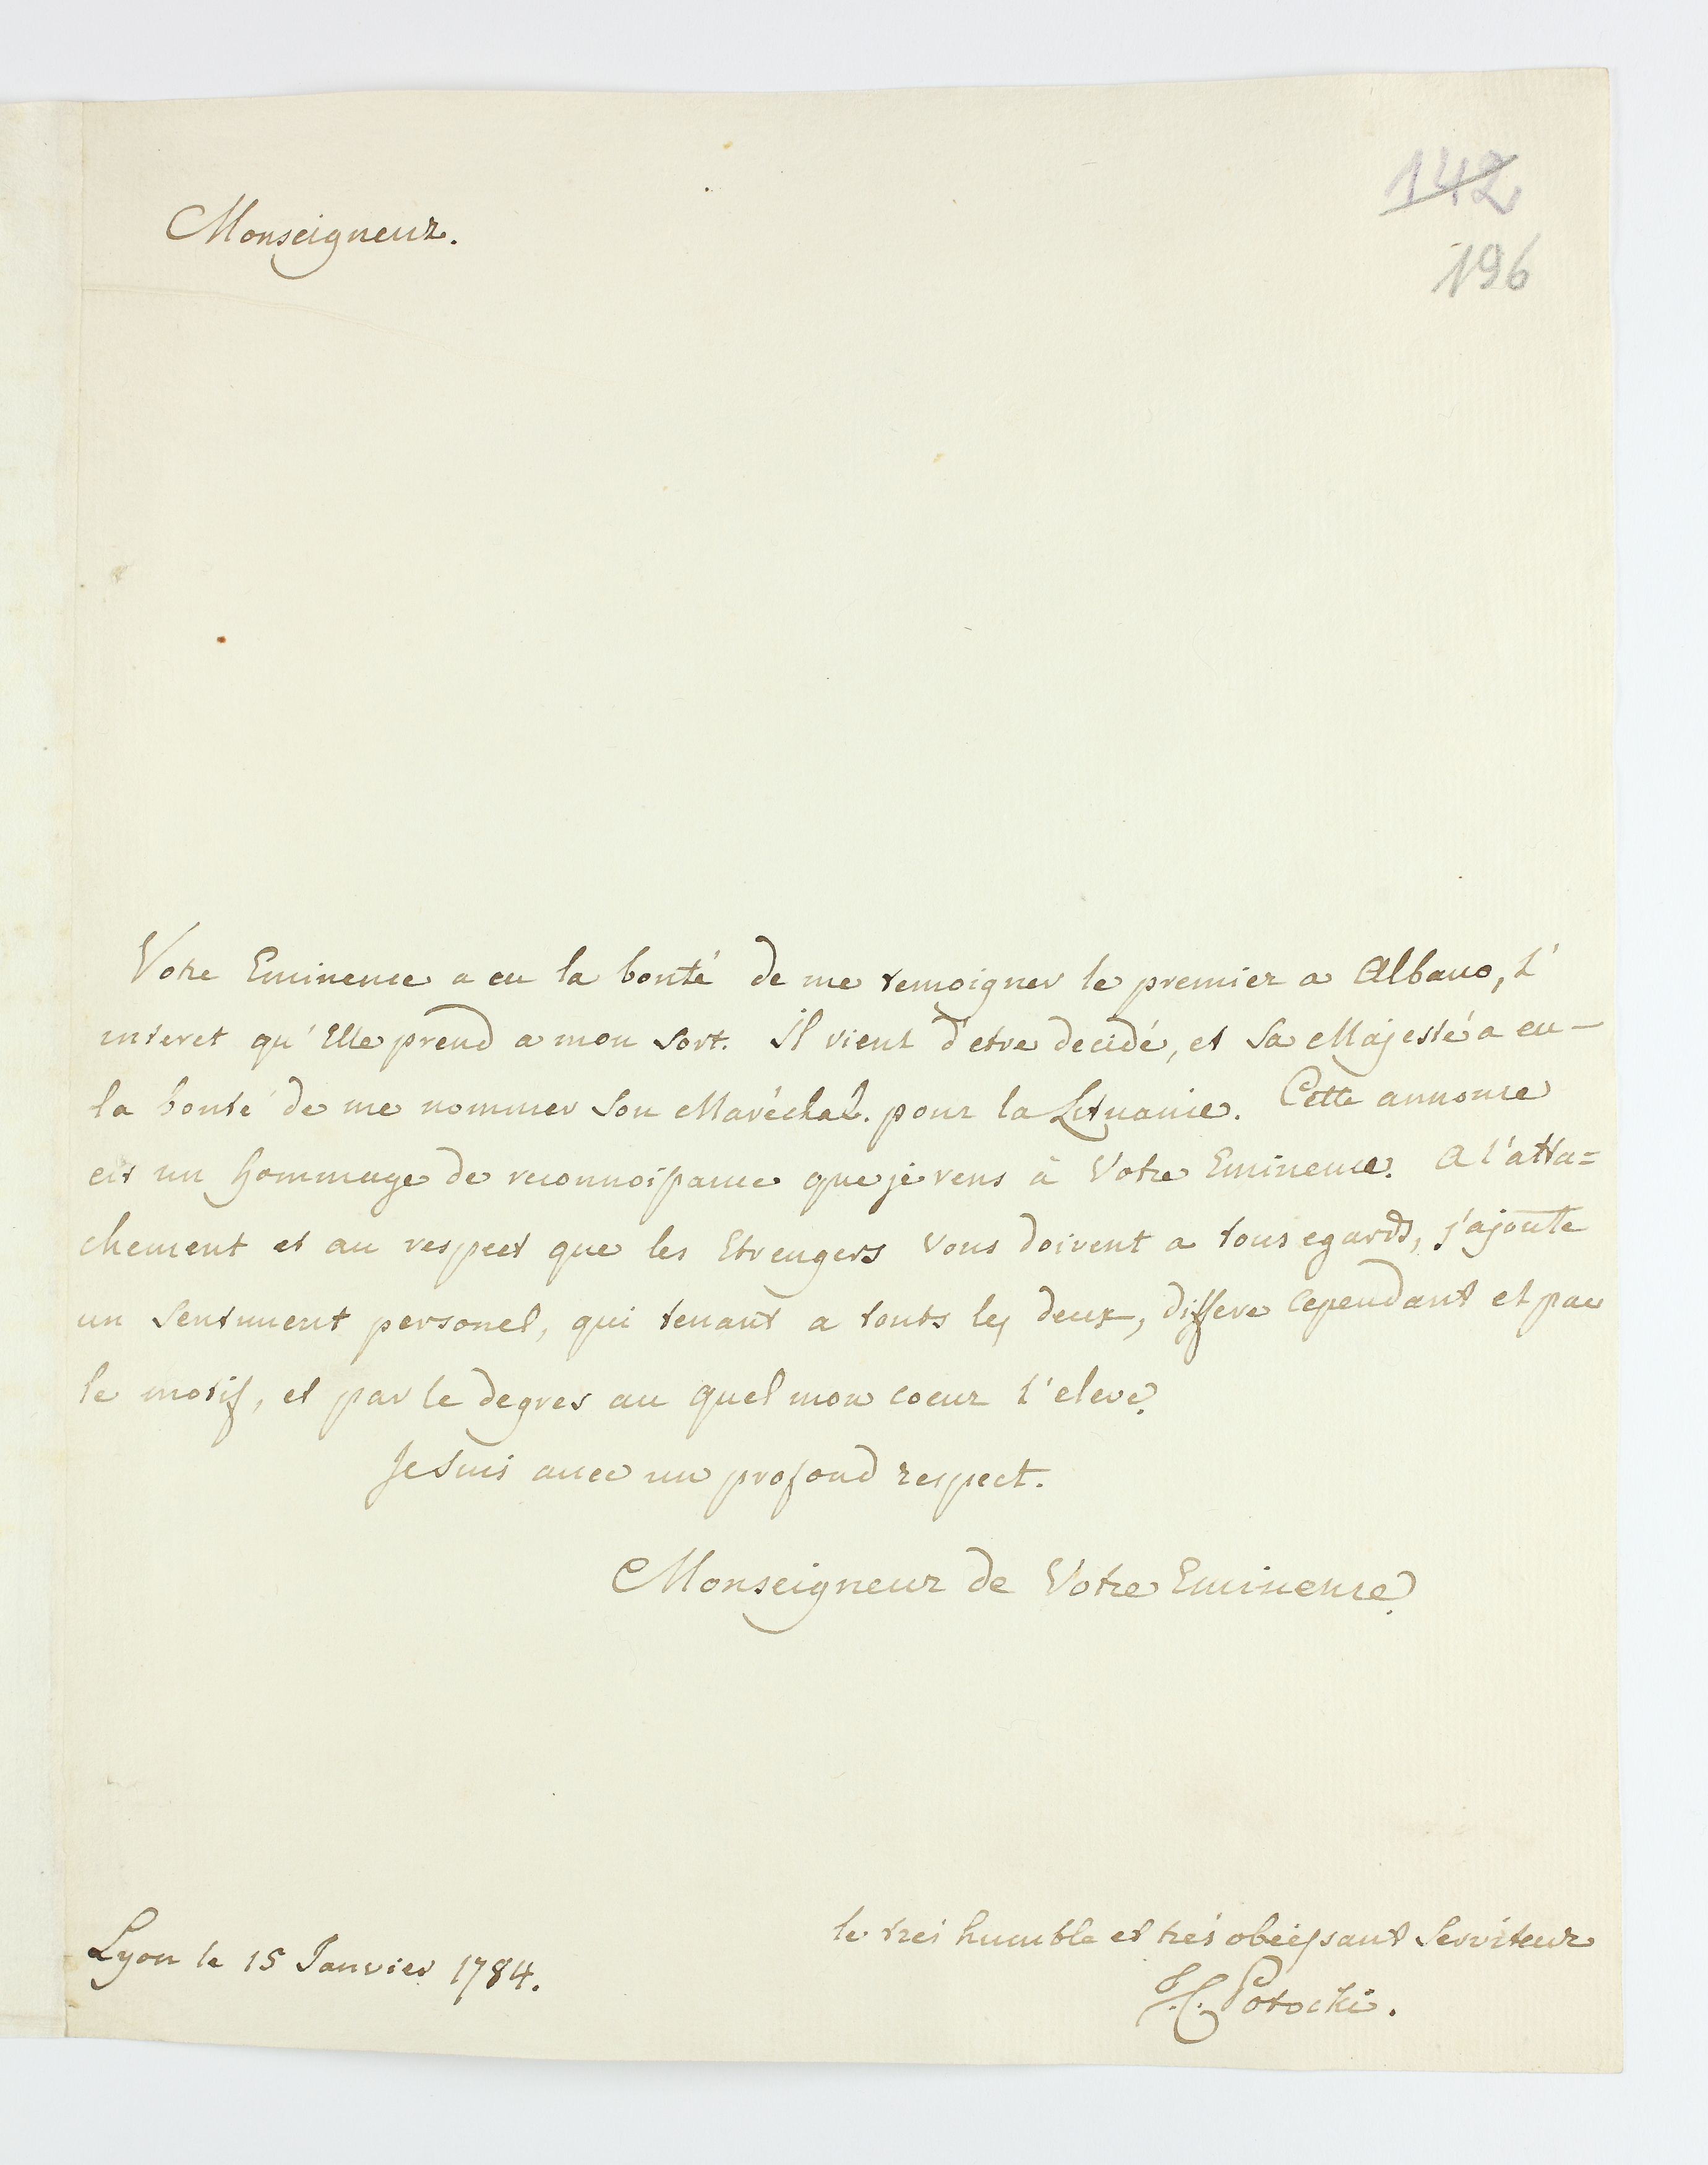 142
196
Monseigneur.
Votre Eminence a eu la bonté de me temoigner le premier a Albano, l'
interet qu'Elle prend a mon sort. Il vient d'etre decidé, et Sa Majesté a eu
la bonté de me nommer Son Maréchal. pour la Lituanie. Cette annonce
est un hommage de reconnoissance que je rens à Votre Eminence. A l'atta=
chement et au respect que les Etrengers vous doivent a tous egards, j'ajoute
un sentiment personel, qui tenant a touts les deux, differe cependant et par
le motif, et par le degres au quel mon coeur l'eleve.
Je suis avec un profond respect.
Monseigneur de Votre Eminence
Lyon le 15 Janvier 1784.
le trés humble et trés obeissant Serviteur
Potocki.